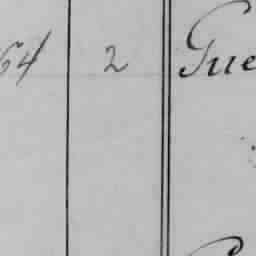 64 2 Gue